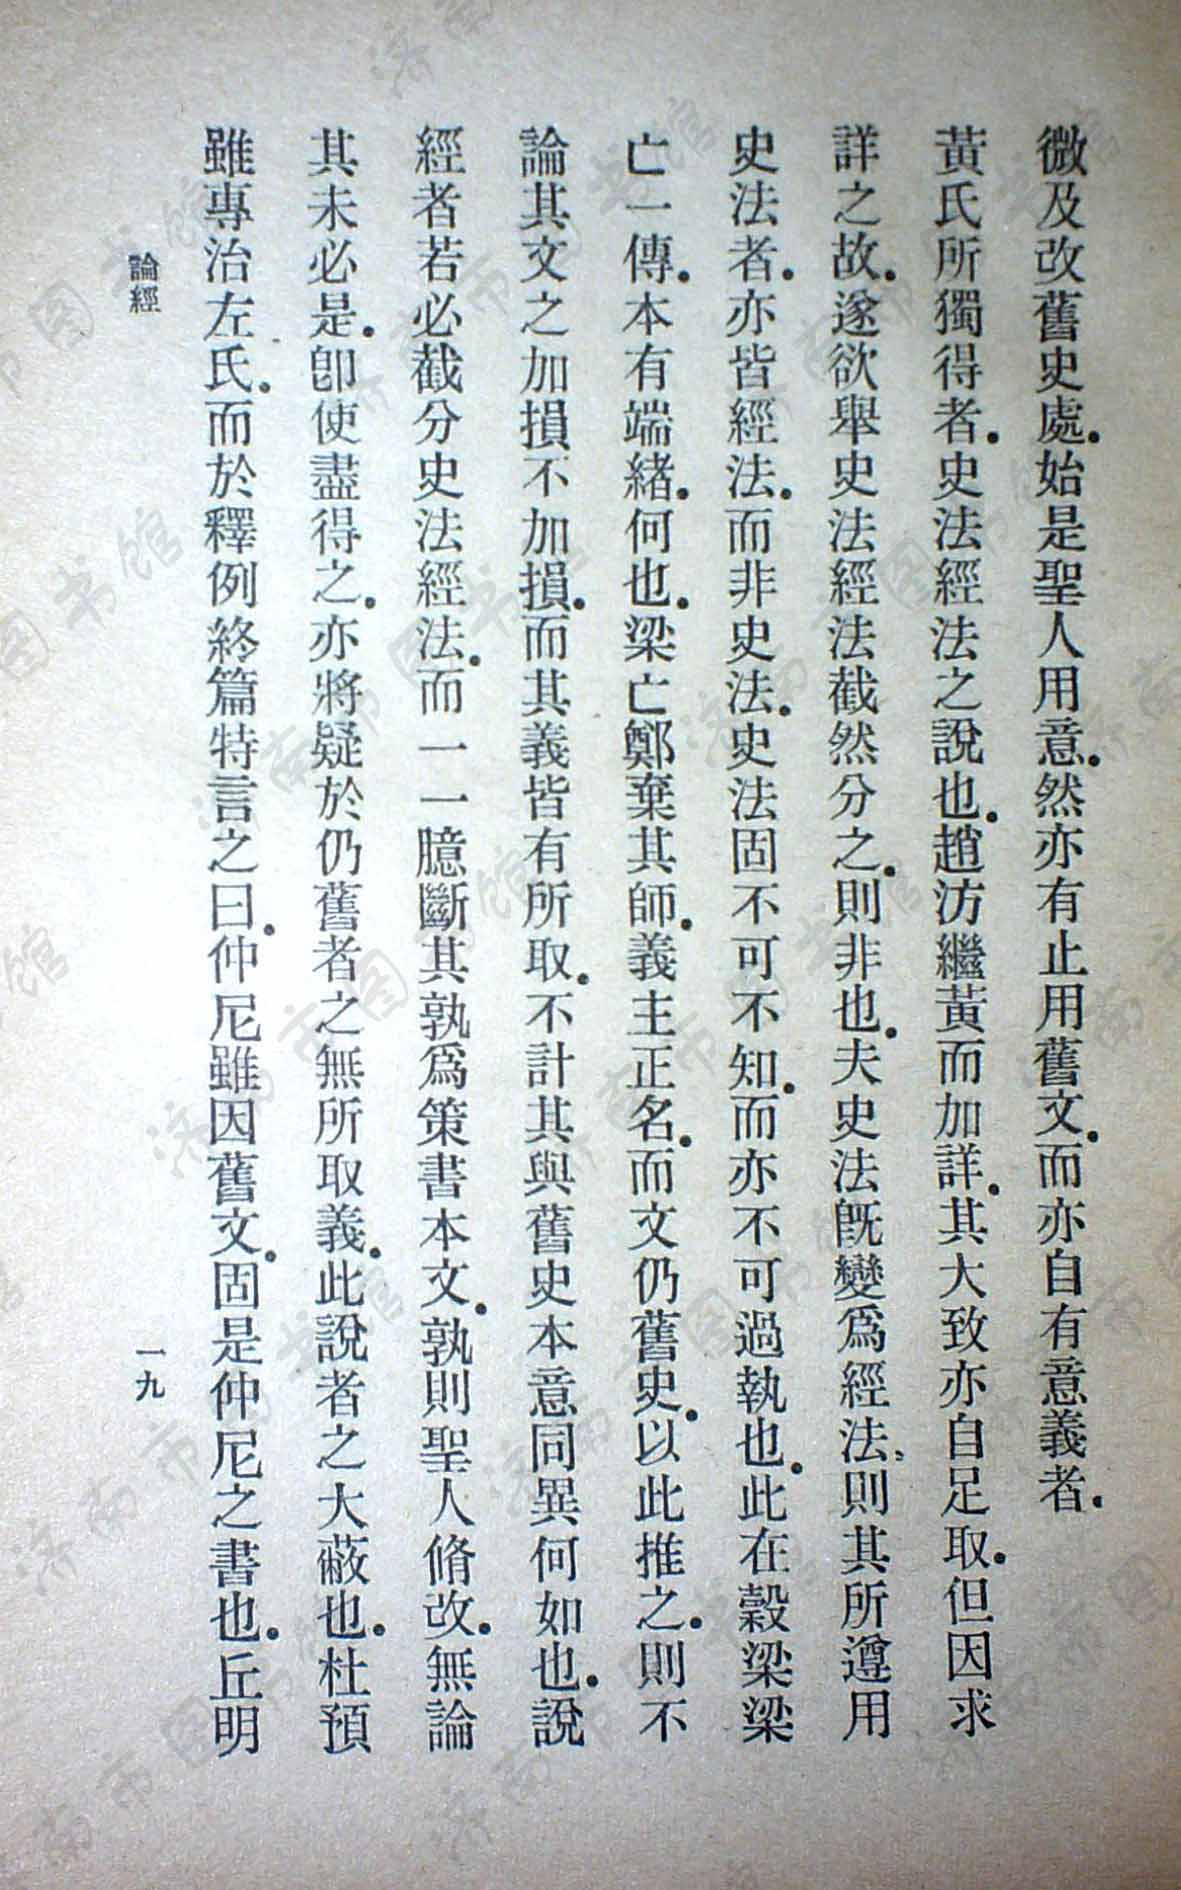 微及改舊史處.始是聖人用意.然亦有止用舊文.而亦自有意義者.
黃氏所獨得者.史法經法之說也.趙汸繼黃而加詳.其大致亦自足取.但因求
詳之故.遂欲舉史法經法截然分之.則非也.夫史法旣變爲經法、則其所遵用
史法者.亦皆經法.而非史法.史法固不可不知.而亦不可過執也.此在穀梁梁
亡一傳.本有端緒.何也.梁亡鄭棄其師.義主正名.而文仍舊史.以此推之.則不
論其文之加損不加損.而其義皆有所取.不計其與舊史本意同異何如也.說
經者若必截分史法經法.而一一臆斷其孰爲策書本文.孰則聖人脩改.無論
其未必是.卽使盡得之.亦將疑於仍舊者之無所取義.此說者之大蔽也.杜預
雖專治左氏.而於釋例終篇特言之曰.仲尼雖因舊文.固是仲尼之書也.丘明
論經
一九
济南市图书馆